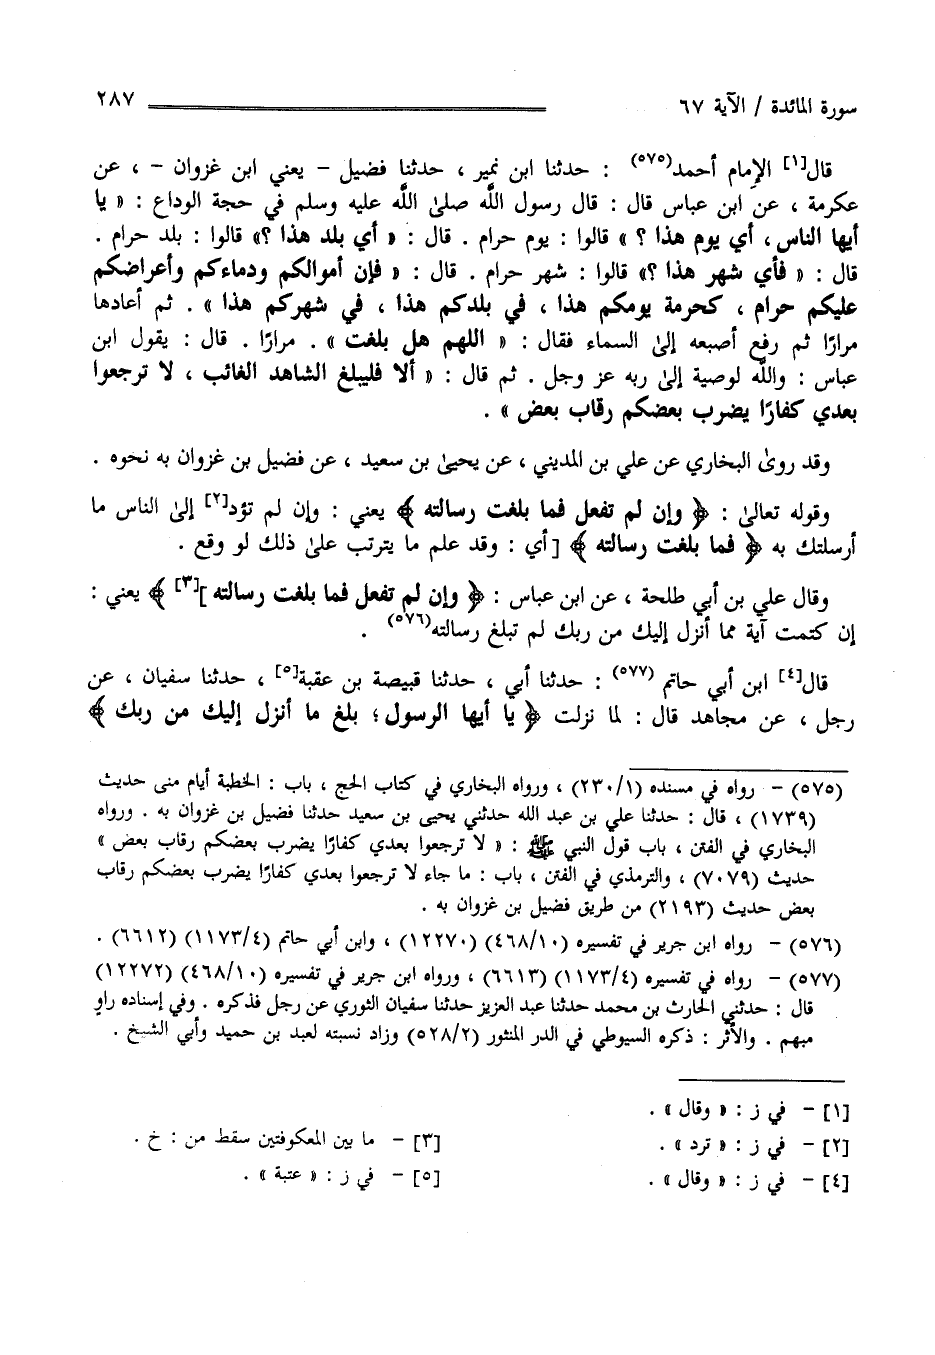 سورة المائدة / الآية ٦٧ ٢٨٧
قال[١] الإمام أحمد(٥٧٥) : حدثنا ابن نمير ، حدثنا فضيل – يعني ابن غزوان – ، عن
عكرمة ، عن ابن عباس قال : قال رسول اللَّه صلى اللَّه عليه وسلم في حجة الوداع : « يا
أيها الناس ، أي يوم هذا ؟ » قالوا : يوم حرام . قال : « أي بلد هذا ؟» قالوا : بلد حرام .
قال : « فأي شهر هذا ؟» قالوا : شهر حرام . قال : « فإن أموالكم ودماءكم وأعراضكم
عليكم حرام ، كحرمة يومكم هذا ، في بلدكم هذا ، في شهركم هذا » . ثم أعادها
مرارًا ثم رفع أصبعه إلىٰ السماء فقال : « اللهم هل بلغت » . مرارًا . قال : يقول ابن
عباس : واللَّه لوصية إلىٰ ربه عز وجل . ثم قال : « ألا فليبلغ الشاهد الغائب ، لا ترجعوا
بعدي كفارًا يضرب بعضكم رقاب بعض » .
وقد روىٰ البخاري عن علي بن المديني ، عن يحيىٰ بن سعيد ، عن فضيل بن غزوان به نحوه .
وقوله تعالىٰ : ﴿ وإن لم تفعل فما بلغت رسالته ﴾ يعني : وإن لم تؤد[٢] إلىٰ الناس ما
أرسلتك به ﴿ فما بلغت رسالته ﴾ [أي : وقد علم ما يترتب علىٰ ذلك لو وقع .
وقال علي بن أبي طلحة ، عن ابن عباس : ﴿ وإن لم تفعل فما بلغت رسالته ][٣] ﴾ يعني :
إن كتمت آية مما أنزل إليك من ربك لم تبلغ رسالته(٥٧٦) .
قال[٤] ابن أبي حاتم (٥٧٧) : حدثنا أبي ، حدثنا قبيصة بن عقبة[٥] ، حدثنا سفيان ، عن
رجل ، عن مجاهد قال : لما نزلت ﴿ يا أيها الرسول؛ بلغ ما أنزل إليك من ربك ﴾
(٥٧٥) – رواه في مسنده (٢٣٠/١) ، ورواه البخاري في كتاب الحج ، باب : الخطبة أيام منى حديث
(١٧٣٩) ، قال : حدثنا علي بن عبد الله حدثني يحيى بن سعيد حدثنا فضيل بن غزوان به . ورواه
البخاري في الفتن ، باب قول النبي ﷺ : « لا ترجعوا بعدي كفارًا يضرب بعضكم رقاب بعض »
حديث (٧٠٧٩) ، والترمذي في الفتن ، باب : ما جاء لا ترجعوا بعدي كفارًا يضرب بعضكم رقاب
بعض حديث (٢١٩٣) من طريق فضيل بن غزوان به .
(٥٧٦) – رواه ابن جرير في تفسيره (٤٦٨/١٠) (١٢٢٧٠) ، وابن أبي حاتم (١١٧٣/٤) (٦٦١٢) .
(٥٧٧) – رواه في تفسيره (١١٧٣/٤) (٦٦١٣) ، ورواه ابن جرير في تفسيره (٤٦٨/١٠) (١٢٢٧٢)
قال : حدثني الحارث بن محمد حدثنا عبد العزيز حدثنا سفيان الثوري عن رجل فذكره . وفي إسناده راوٍ
مبهم . والأثر : ذكره السيوطي في الدر المنثور (٥٢٨/٢) وزاد نسبته لعبد بن حميد وأبي الشيخ .
[١] – في ز : « وقال » .
[٢] – في ز : « ترد » . [٣] – ما بين المعكوفتين سقط من : خ .
[٤] – في ز : « وقال » . [٥] – في ز : « عتبة » .